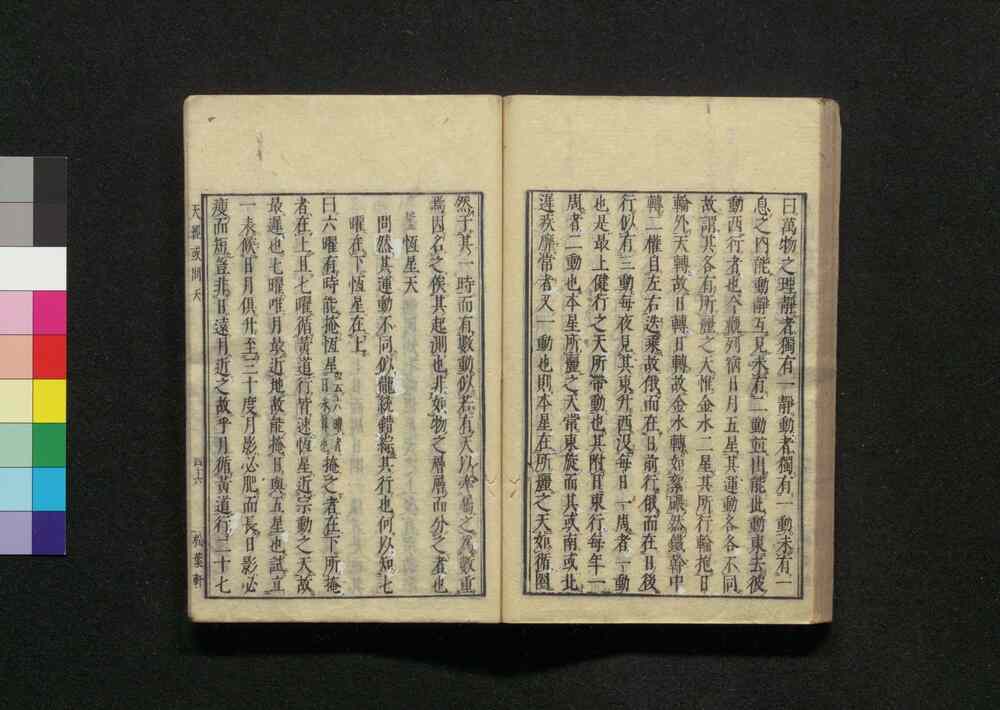 曰萬物之理靜者獨有一靜動者獨有一動未有一
息之內能動靜互見未有二動並出能此動東去彼
動西行者也今觀列宿日月五星其運動各各不同
故謂其各有所麗之天惟金水二星其所行輪抱日
輪外天轉故日轉日轉故金水轉如絮碾然鐵幹中
轉二權自左右迭乘故俄而在日前行俄而在日後
行似有三動每夜見其東升西沒每日一周者一動
也是最上健行之天所帶動也其附日東行每年一
周者二動也本星所麗之天常東旋而其或南或北
遲疾靡常者又一動也則本星在所麗之天如循圈
然于其一時而有數動似若有天以為之為數重
焉因名之俟其起測也非如物之層層而分之者也
恆星天
問然其運動不同似龍統錯綜其行也何以知七
曜在下恆星在上
曰六曜有時能掩恆星掩之者在下所掩
者在上且七曜循黃道行皆速恆星近宗動之天故
最遲也七曜唯月最近地故能掩日與五星也試立
一表候日月俱升至三十度月影必肥而長日影必
瘦而短豈非日遠月近之故乎月循黃道行二十七
天經或問 天
四十六
松葉軒